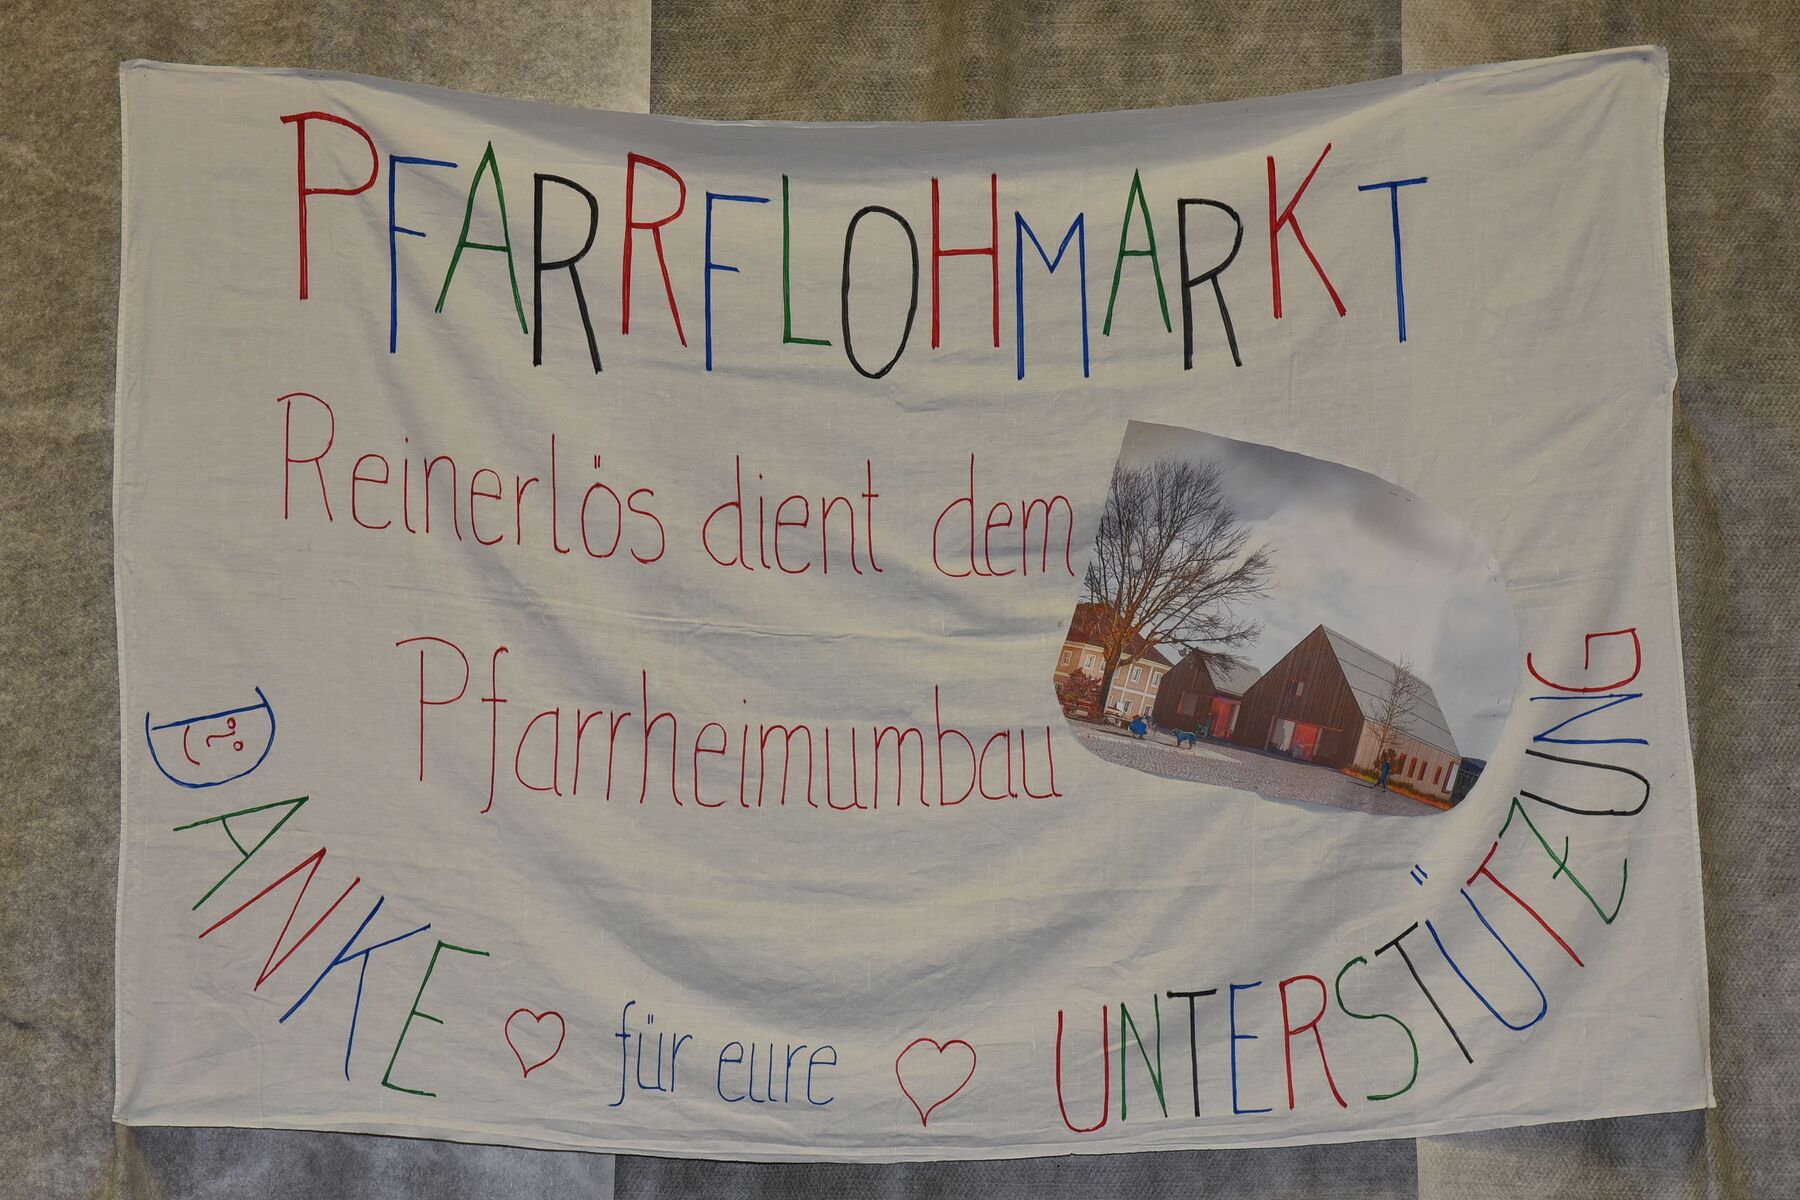 PFARRFLOHMARKT
Reinerlös dient dem
Pfarrheimumbau
DANKE für eure UNTERSTÜTZUNG